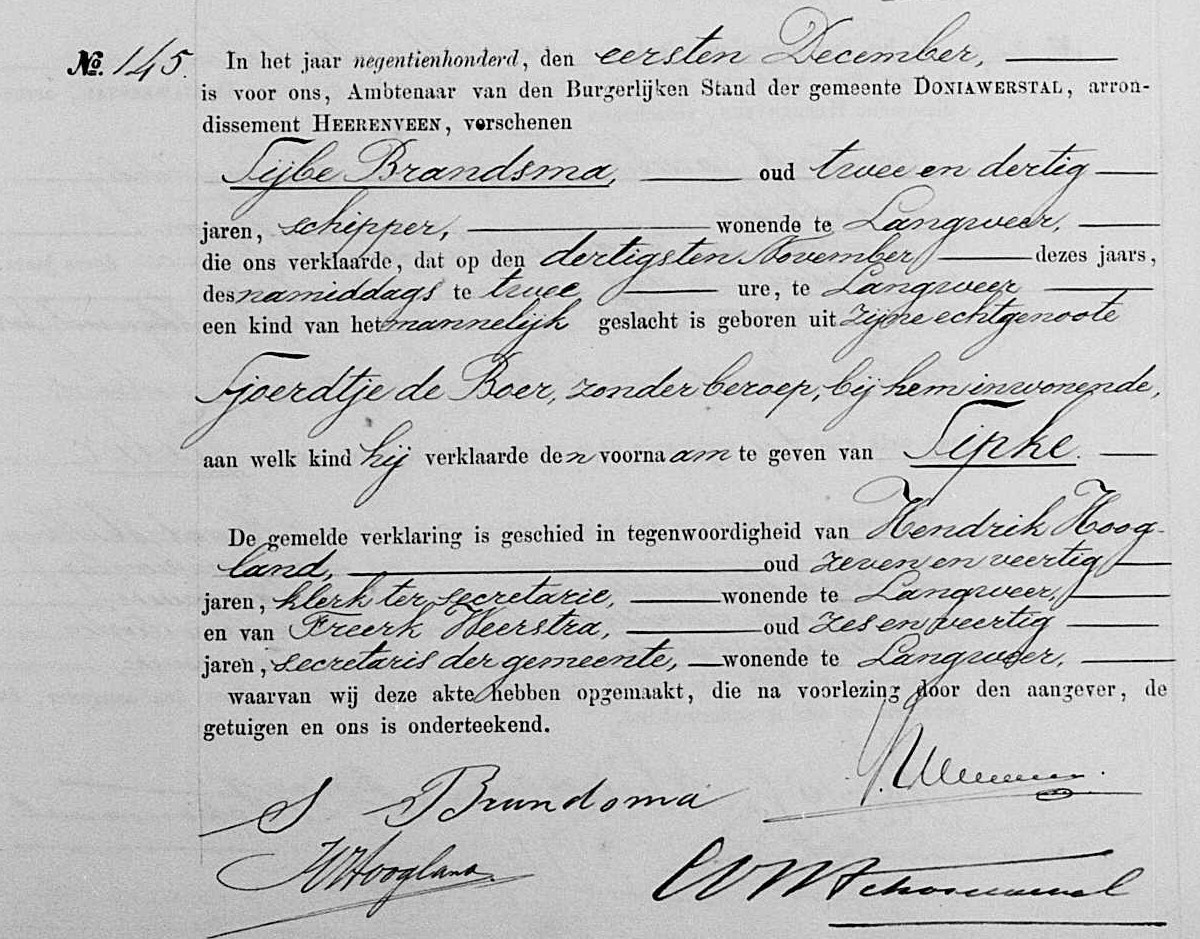 No. 145. In het jaar negentienhonderd, den eersten December,
is voor ons, Ambtenaar van den Burgerlijken Stand der gemeente DONIAWERSTAL, arron-
dissement HEERENVEEN, verschenen
Sijbe Brandsma, oud twee en dertig
jaren, schipper, wonende te Langweer,
die ons verklaarde, dat op den dertigsten November dezes jaars,
des namiddags te twee ure, te Langweer
een kind van het mannelijk geslacht is geboren uit zijne echtgenoote
Sjoerdtje de Boer, zonder beroep, bij hem inwonende,
aan welk kind hij verklaarde den voornaam te geven van Sipke.
De gemelde verklaring is geschied in tegenwoordigheid van Hendrik Hoog-
land, oud zeven en veertig
jaren, klerk ter secretarie, wonende te Langweer,
en van Freerk Heerstra, oud zes en veertig
jaren, secretaris der gemeente, wonende te Langweer,
waarvan wij deze akte hebben opgemaakt, die na voorlezing door den aangever, de
getuigen en ons is onderteekend.
S Brandsma
H Hoogland